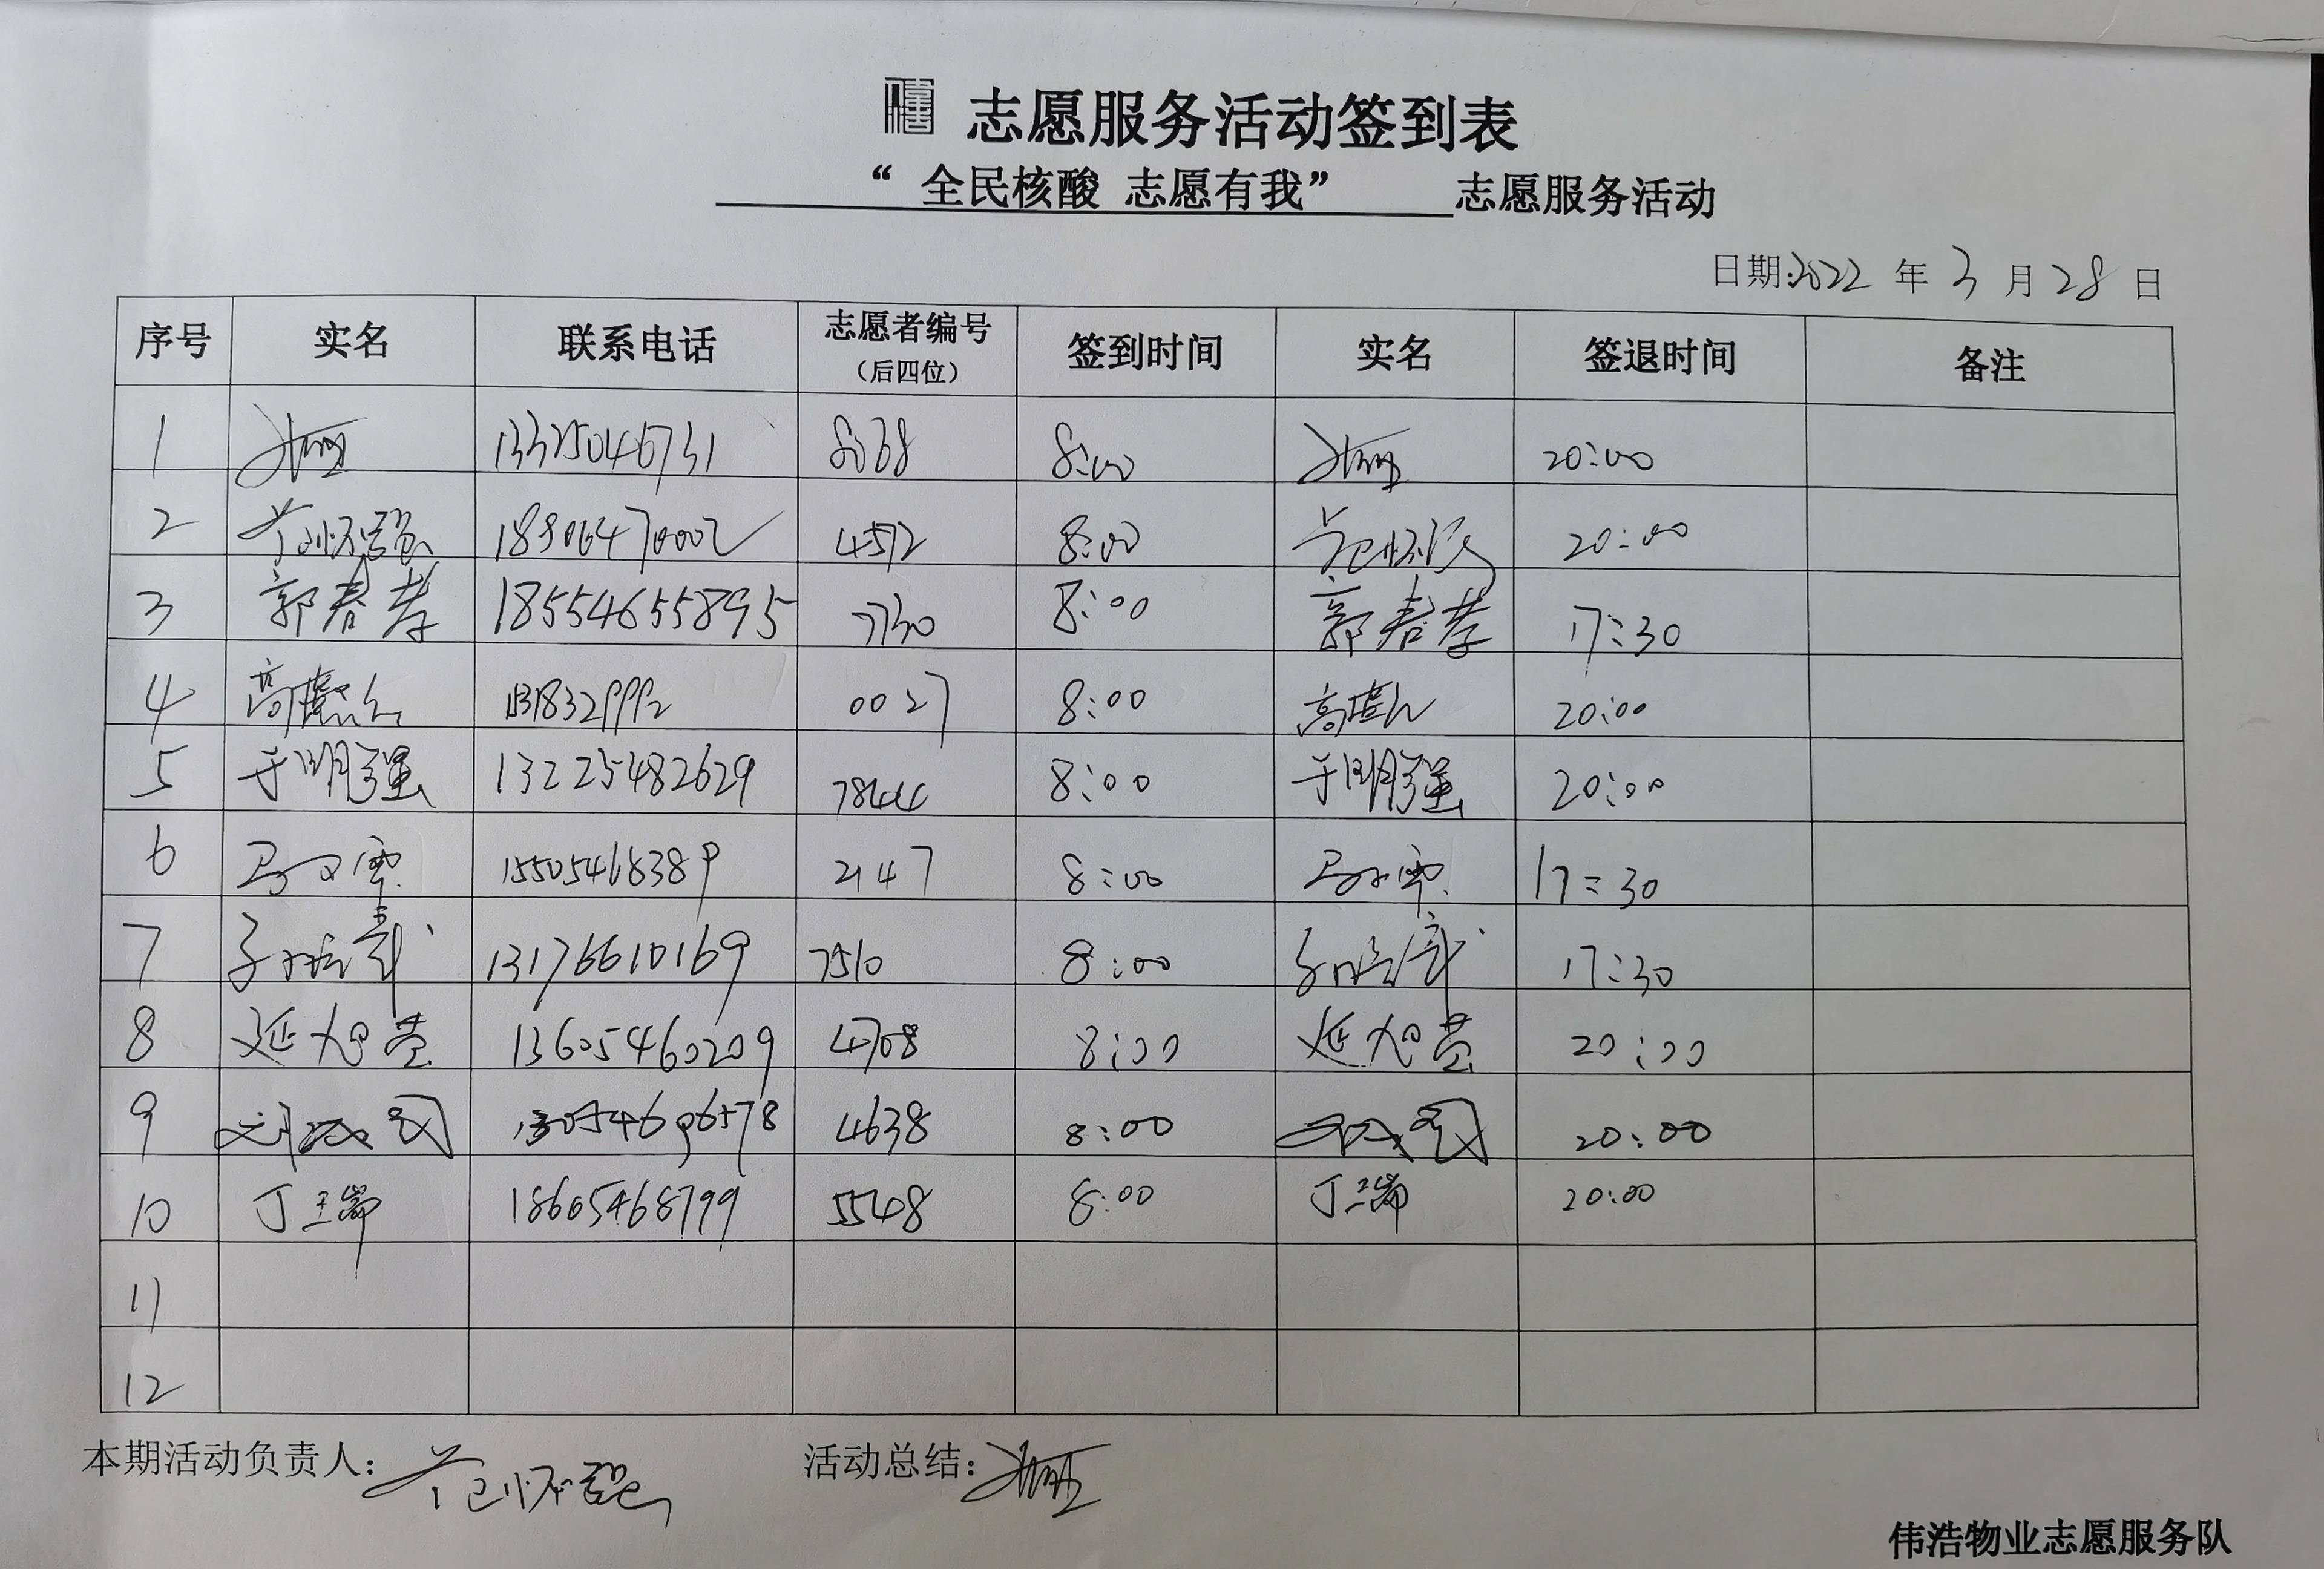 志愿服务活动签到表
“ 全民核酸 志愿有我” 志愿服务活动
日期:2022 年 3 月 28 日
序号 实名 联系电话 志愿者编号 签到时间 实名 签退时间 备注
（后四位）
1 13325046731 8:00 20:00
2 4572 8:00 20:00
3 郭春孝 18554655895 7730 8:00 郭春孝 17:30
4 0027 8:00 20:00
5 于明强 13225482629 7844 8:00 于明强 20:00
6 15505468389 2147 8:00 17:30
7 13176610169 7510 8:00 17:30
8 延旭 13605460209 4708 8:00 延旭 20:00
9 4638 8:00 20:00
10 丁玉瑞 18605468799 5548 8:00 丁玉瑞 20:00
11
12
本期活动负责人: 范怀强 活动总结:
伟浩物业志愿服务队